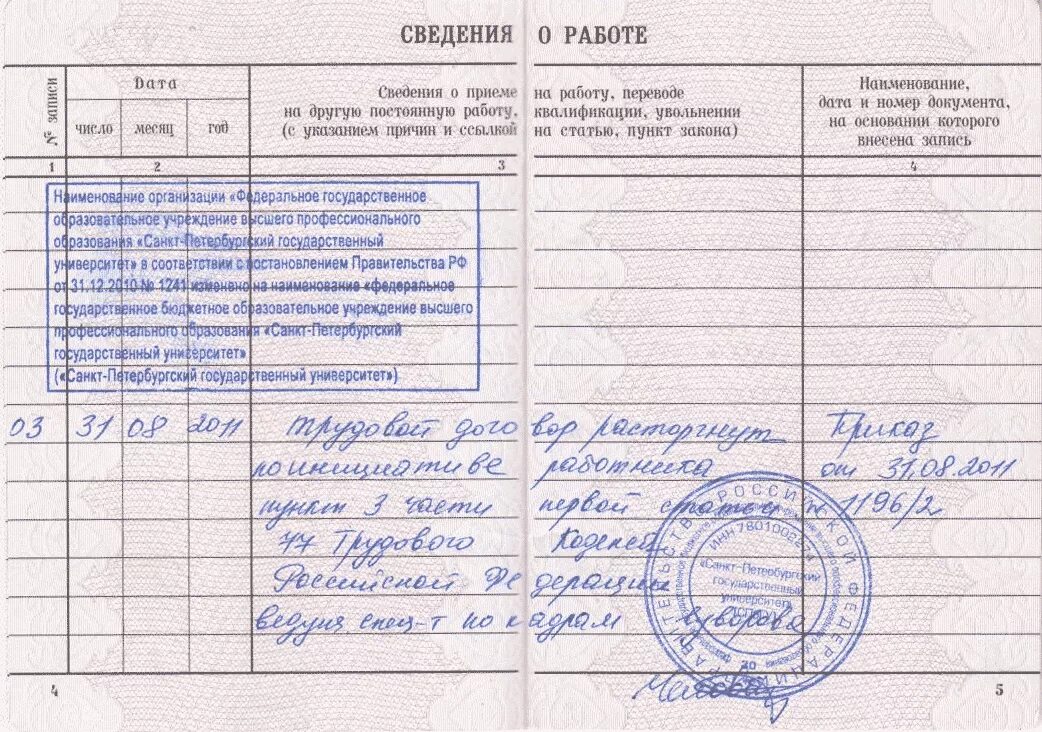 СВЕДЕНИЯ О РАБОТЕ
№ записи
Дата
число месяц год
Сведения о приеме на работу, переводе
на другую постоянную работу, квалификации, увольнении
(с указанием причин и ссылкой на статью, пункт закона)
Наименование,
дата и номер документа,
на основании которого
внесена запись
1 2 3 4
Наименование организации «Федеральное государственное
образовательное учреждение высшего профессионального
образования «Санкт-Петербургский государственный
университет» в соответствии с постановлением Правительства РФ
от 31.12.2010 № 1241 изменено на наименование «федеральное
государственное бюджетное образовательное учреждение высшего
профессионального образования «Санкт-Петербургский
государственный университет»
(«Санкт-Петербургский государственный университет»)
03 31 08 2011 Трудовой договор расторгнут Приказ
по инициативе работника от 31.08.2011
пункт 3 части первой статьи № 1196/2
77 Трудового Кодекса
Российской Федерации
ведущ спец-т по кадрам Суворова
ПРАВИТЕЛЬСТВО РОССИЙСКОЙ ФЕДЕРАЦИИ
«Санкт-Петербургский
государственный
университет»
(СПбГУ)
20
4
5